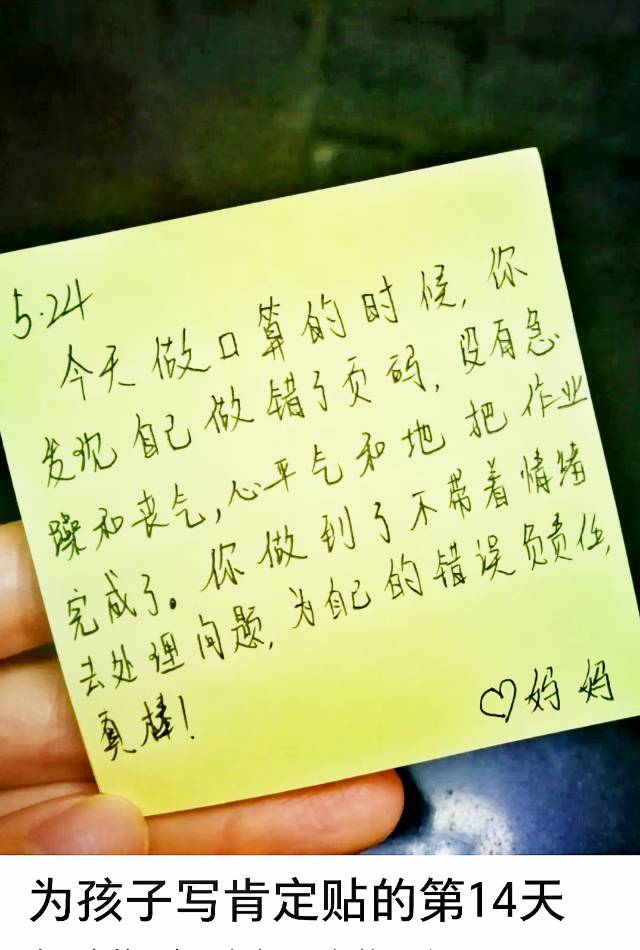 5.24
今天做口算的时候,你
发现自己做错了页码,没有急
躁和丧气,心平气和地把作业
完成了。你做到了不带着情绪
去处理问题,为自己的错误负责任,
真棒!
♡妈妈
为孩子写肯定贴的第14天